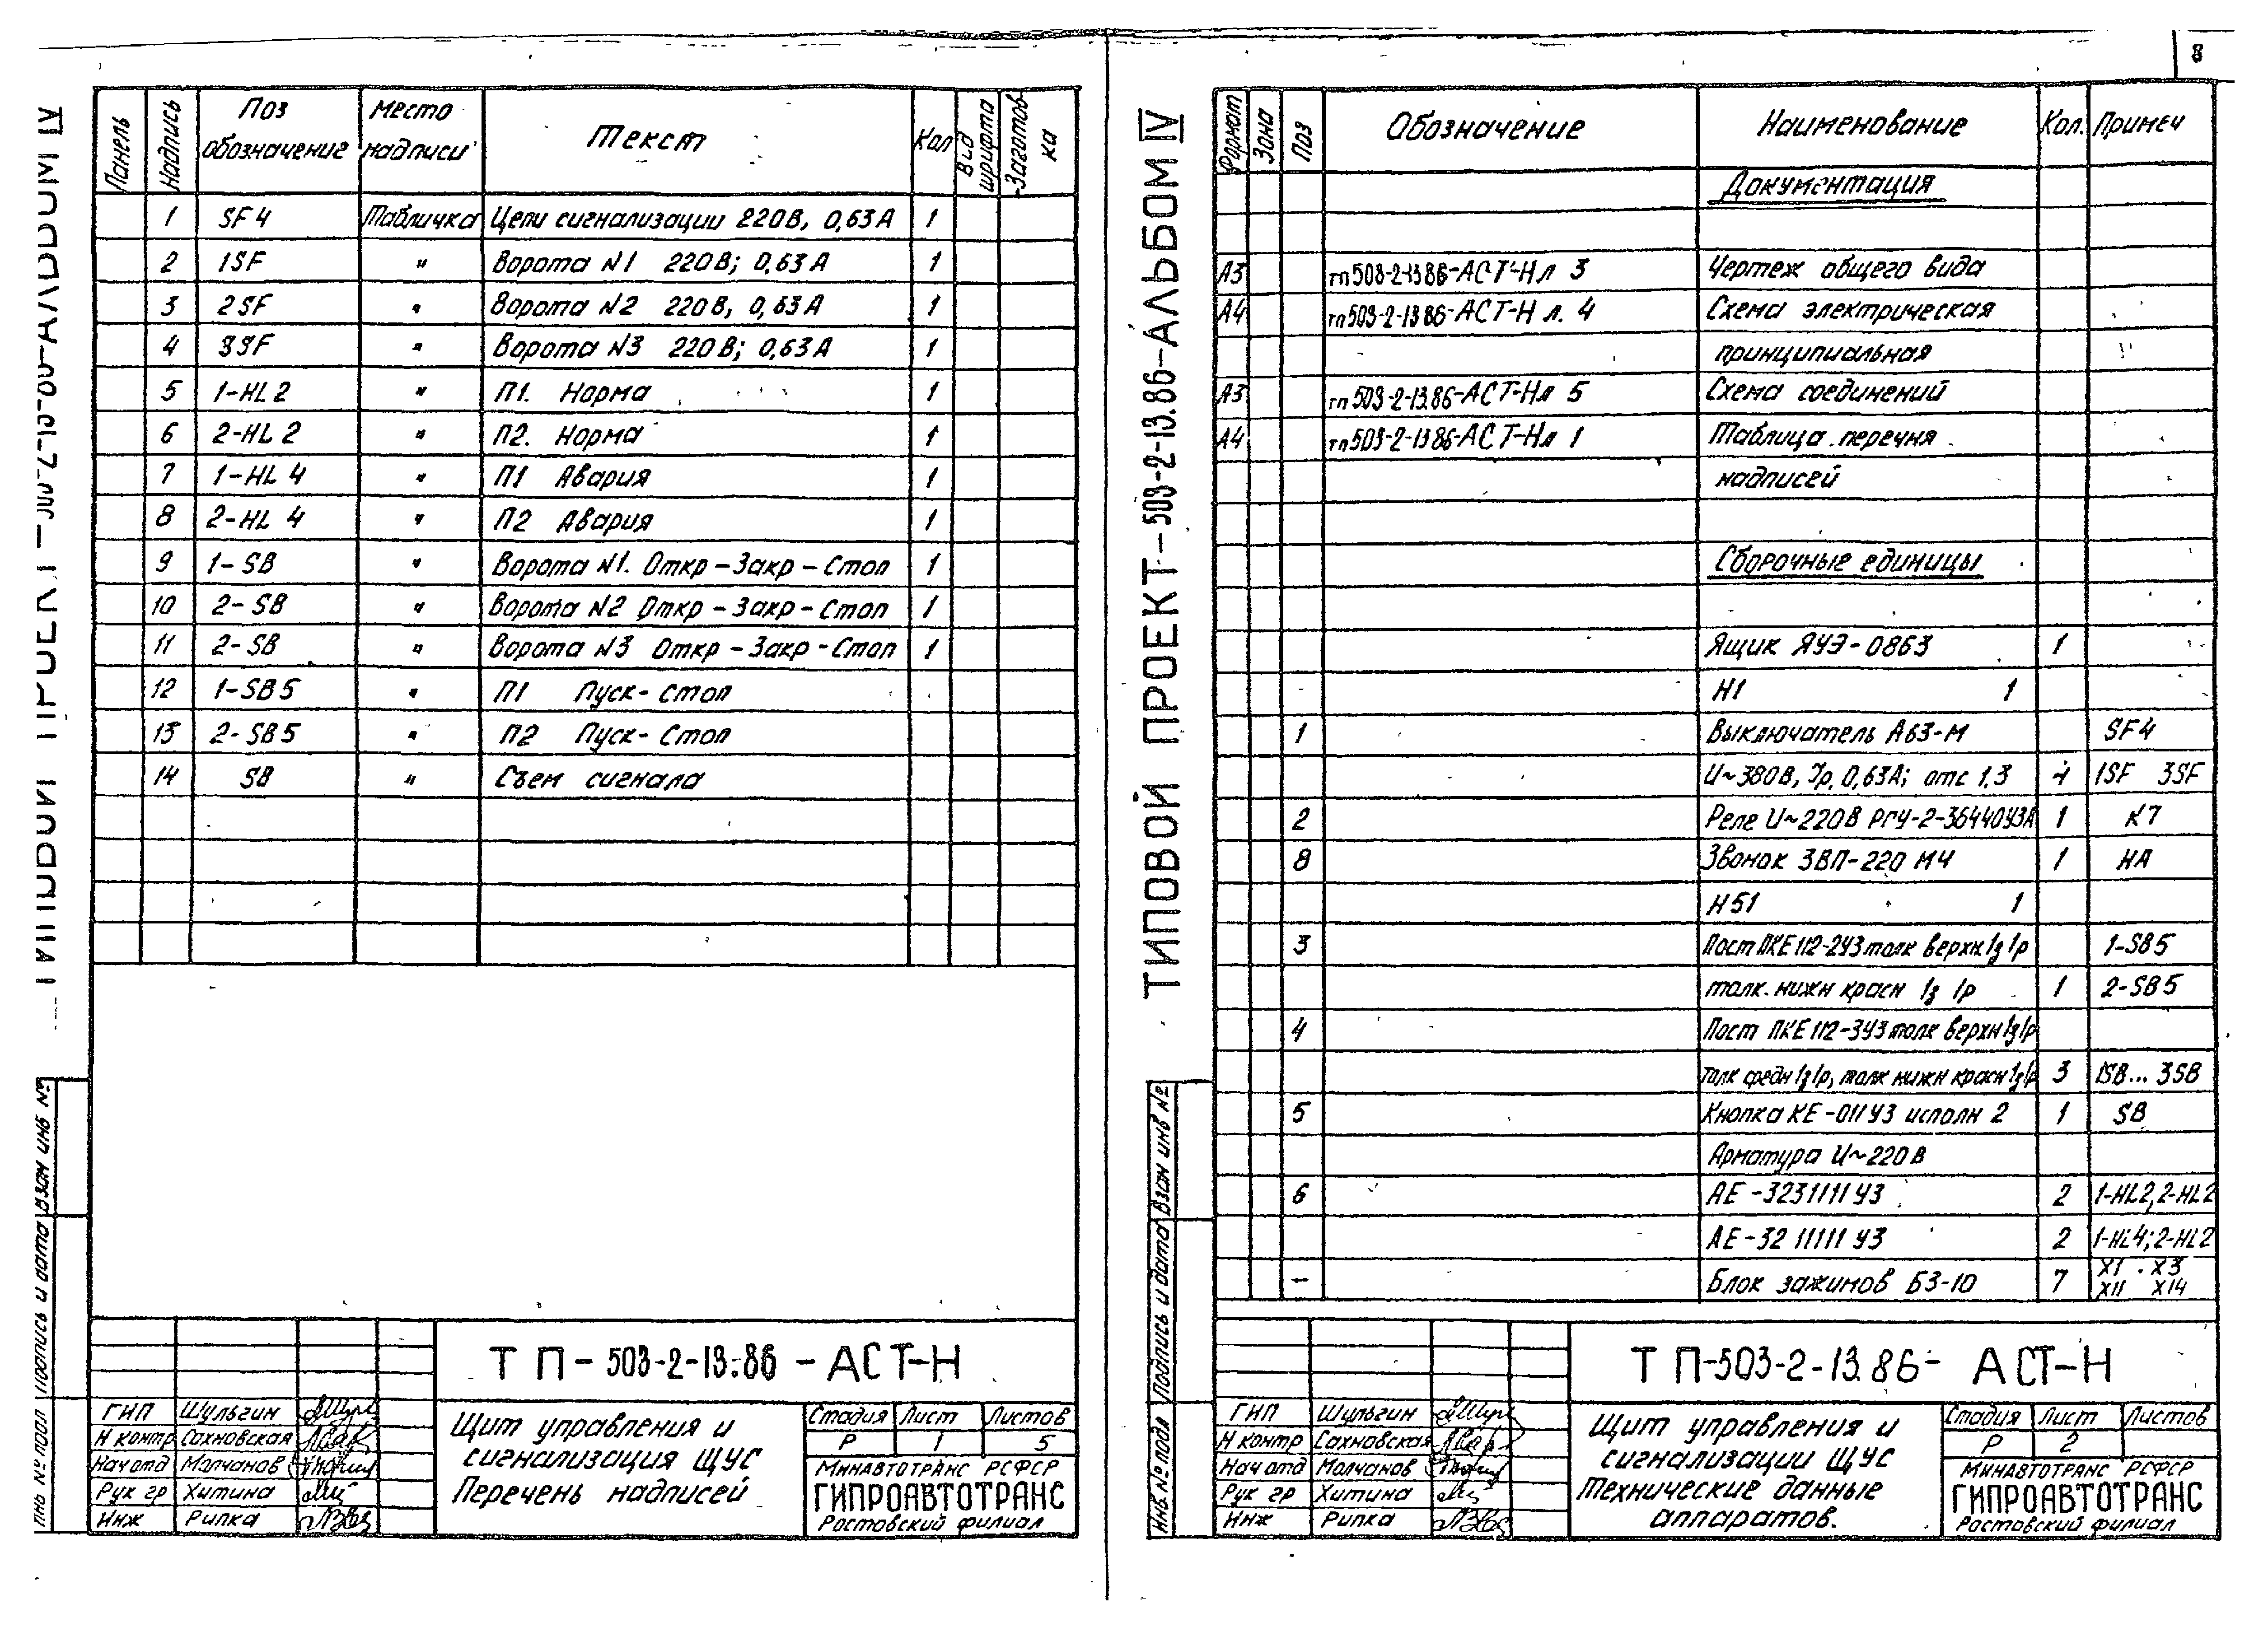 8
ТИПОВОЙ ПРОЕКТ-503-2-13.86-АЛЬБОМ IV
Панель Надпись Поз обозначение Место надписи Текст Кол Вид шрифта Заготовка
1 SF4 Табличка Цепи сигнализации 220В, 0,63А 1
2 1SF " Ворота N1 220В; 0,63А 1
3 2SF " Ворота N2 220В, 0,63А 1
4 3SF " Ворота N3 220В; 0,63А 1
5 1-HL2 " П1. Норма 1
6 2-HL2 " П2. Норма 1
7 1-HL4 " П1 Авария 1
8 2-HL4 " П2 Авария 1
9 1-SB " Ворота N1. Откр-Закр-Стоп 1
10 2-SB " Ворота N2 Откр-Закр-Стоп 1
11 2-SB " Ворота N3 Откр-Закр-Стоп 1
12 1-SB5 " П1 Пуск-Стоп
13 2-SB5 " П2 Пуск-Стоп
14 SB " Съем сигнала
Инв № подл Подпись и дата Взам инв №
ТП-503-2-13.86-АСТ-Н
ГИП Шульгин
Н контр Сахновская
Нач отд Молчанов
Рук гр Хитина
Инж Рипка
Щит управления и
сигнализация ЩУС
Перечень надписей
Стадия Лист Листов
Р 1 5
Минавтотранс РСФСР
ГИПРОАВТОТРАНС
Ростовский филиал
ТИПОВОЙ ПРОЕКТ-503-2-13.86-АЛЬБОМ IV
Формат Зона Поз Обозначение Наименование Кол. Примеч
Документация
А3 тп503-2-13 86-АСТ-Н л 3 Чертеж общего вида
А4 тп503-2-13 86-АСТ-Н л. 4 Схема электрическая
принципиальная
А3 тп503-2-13.86-АСТ-Н л 5 Схема соединений
А4 тп503-2-13 86-АСТ-Н л 1 Таблица перечня
надписей
Сборочные единицы
Ящик ЯУЭ-0863 1
Н1 1
1 Выключатель А63-М SF4
U~380В, Iр, 0,63А; отс 1,3 4 1SF 3SF
2 Реле U~220В РПУ-2-36440У3А 1 К7
8 Звонок ЗВП-220 МЧ 1 НА
Н51 1
3 Пост ПКЕ112-2У3 толк верхн. 1з 1р 1-SB5
толк. нижн красн 1з 1р 1 2-SB5
4 Пост ПКЕ112-3У3 толк верхн 1з 1р
толк средн 1з 1р, толк нижн красн 1з 1р 3 1SB... 3SB
5 Кнопка КЕ-011У3 исполн 2 1 SB
Арматура U~220В
6 АЕ-3231111У3 2 1-HL2, 2-HL2
АЕ-32 11111 У3 2 1-HL4; 2-HL2
– Блок зажимов БЗ-10 7 Х1 . Х3
Х11 Х14
Инв № подл Подпись и дата Взам инв №
ТП-503-2-13.86- АСТ-Н
ГИП Шульгин
Н контр Сахновская
Нач отд Молчанов
Рук гр Хитина
Инж Рипка
Щит управления и
сигнализации ЩУС
Технические данные
аппаратов.
Стадия Лист Листов
Р 2
Минавтотранс РСФСР
ГИПРОАВТОТРАНС
Ростовский филиал